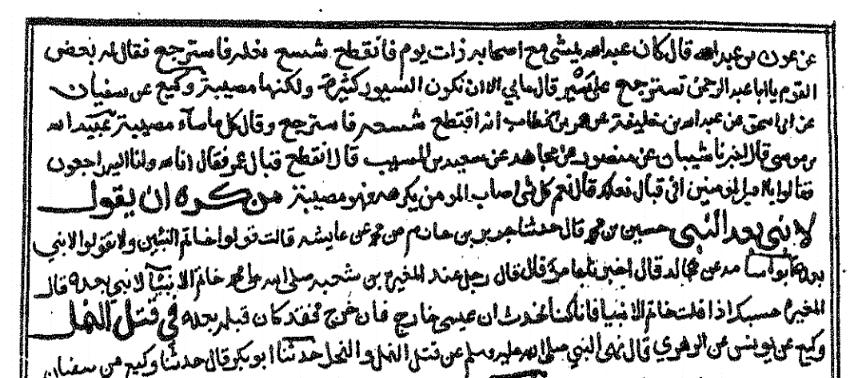 عن عون بن عبد الله قال كان عبد الله يمشي مع اصحابه ذات يوم فانقطع شسع نعله فاسترجع فقال له بعض
القوم يا ابا عبد الرحمن تسترجع على سير قال مابي الا ان تكون السيور كثيرة ولكنها مصيبة وكيع عن سفيان
عن ابي اسحق عن عبد الله بن خليفة عن عمر بن الخطاب انه انقطع شسعه فاسترجع وقال كل ما ساءك مصيبة عبيد الله
بن موسى قال اخبرنا شيبان عن منصور عن مجاهد عن سعيد بن المسيب قال انقطع قبال عمر فقال انا لله وانا اليه راجعون
فقالوا يا امير المومنين افي قبال نعلك قال نعم كل شي اصاب المومن يكرهه فهو مصيبة من كره ان يقول
لا نبي بعد النبي حسين بن محمد قال حدثنا جرير بن حازم عن محمد عن عايشه قالت قولوا خاتم النبيين ولا تقولوا لا نبي
بعده ابو اسامه عن مجالد قال اخبرنا عامر قال قال رجل عند المغيرة بن شعبه صلى الله على محمد خاتم الانبيآ لا نبي بعده قال
المغيرة حسبك اذا قلت خاتم الانبيا فانا كنا نحدث ان عيسى خارج فان خرج فقد كان قبله وبعده في قتل النمل
وكيع عن يونس عن الزهري قال نهى النبي صلى الله عليه وسلم عن قتل النمل والنحل حدثنا ابو بكر قال حدثنا وكيع عن سفيان